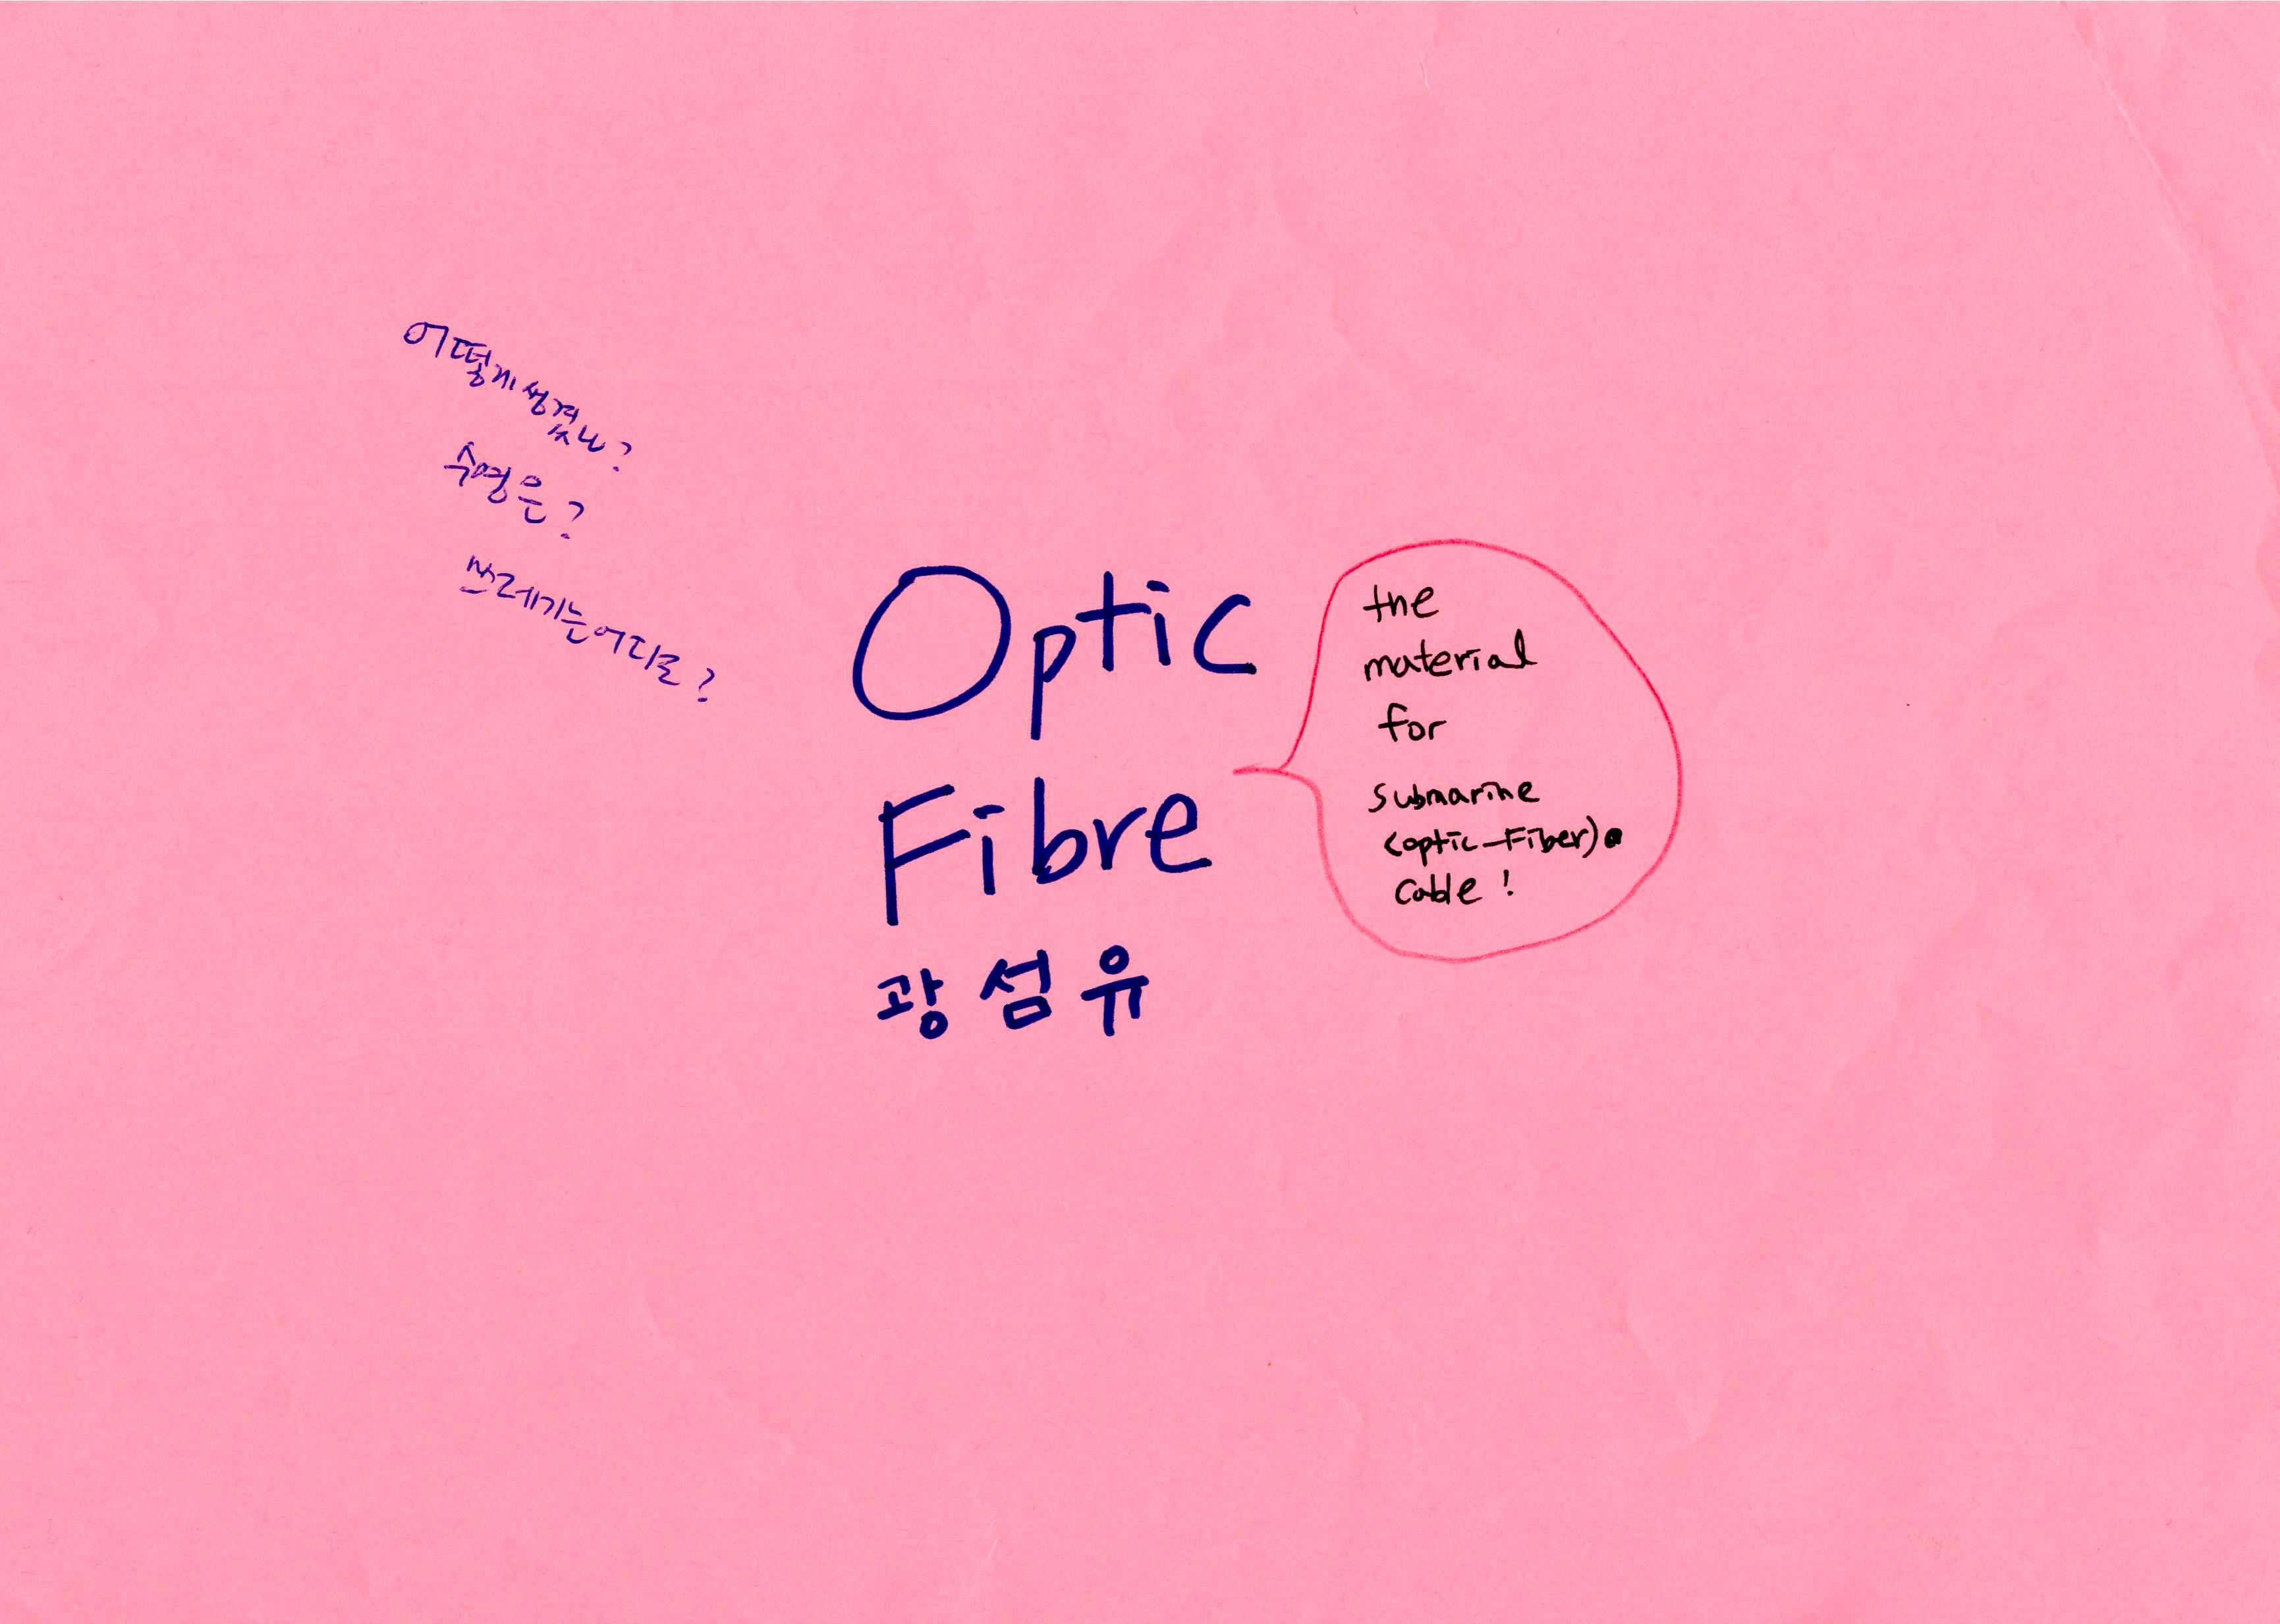 어떻게 생겼나?
수명은?
쓰레기는 어디로?
Optic
Fibre
광섬유
the
material
for
submarine
(optic-Fiber)
cable!